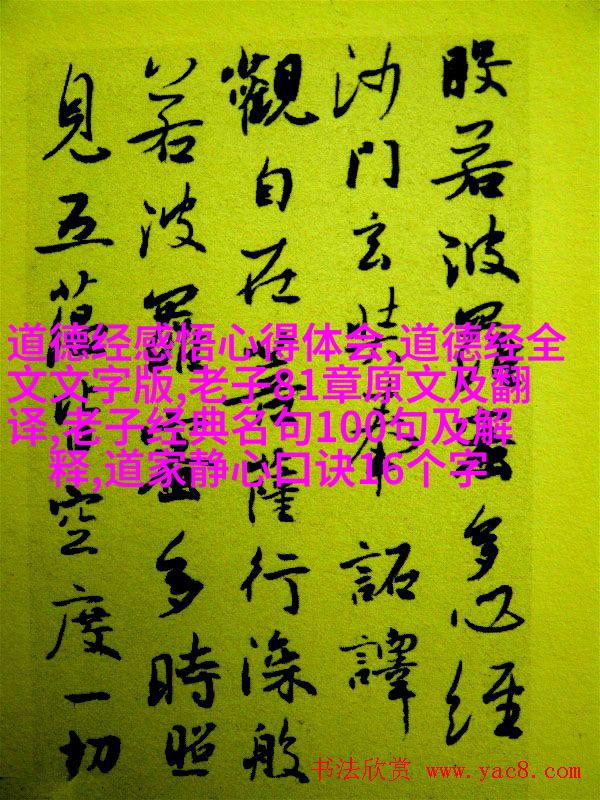 般若波羅蜜多心經
沙門玄奘奉 詔譯
觀自在菩薩行深般
若波羅蜜多時照
見五蘊皆空度一切
道德经感悟心得体会,道德经全
文文字版,老子81章原文及翻
译,老子经典名句100句及解
释,道家静心口诀16个字
书法欣赏 www.yac8.com